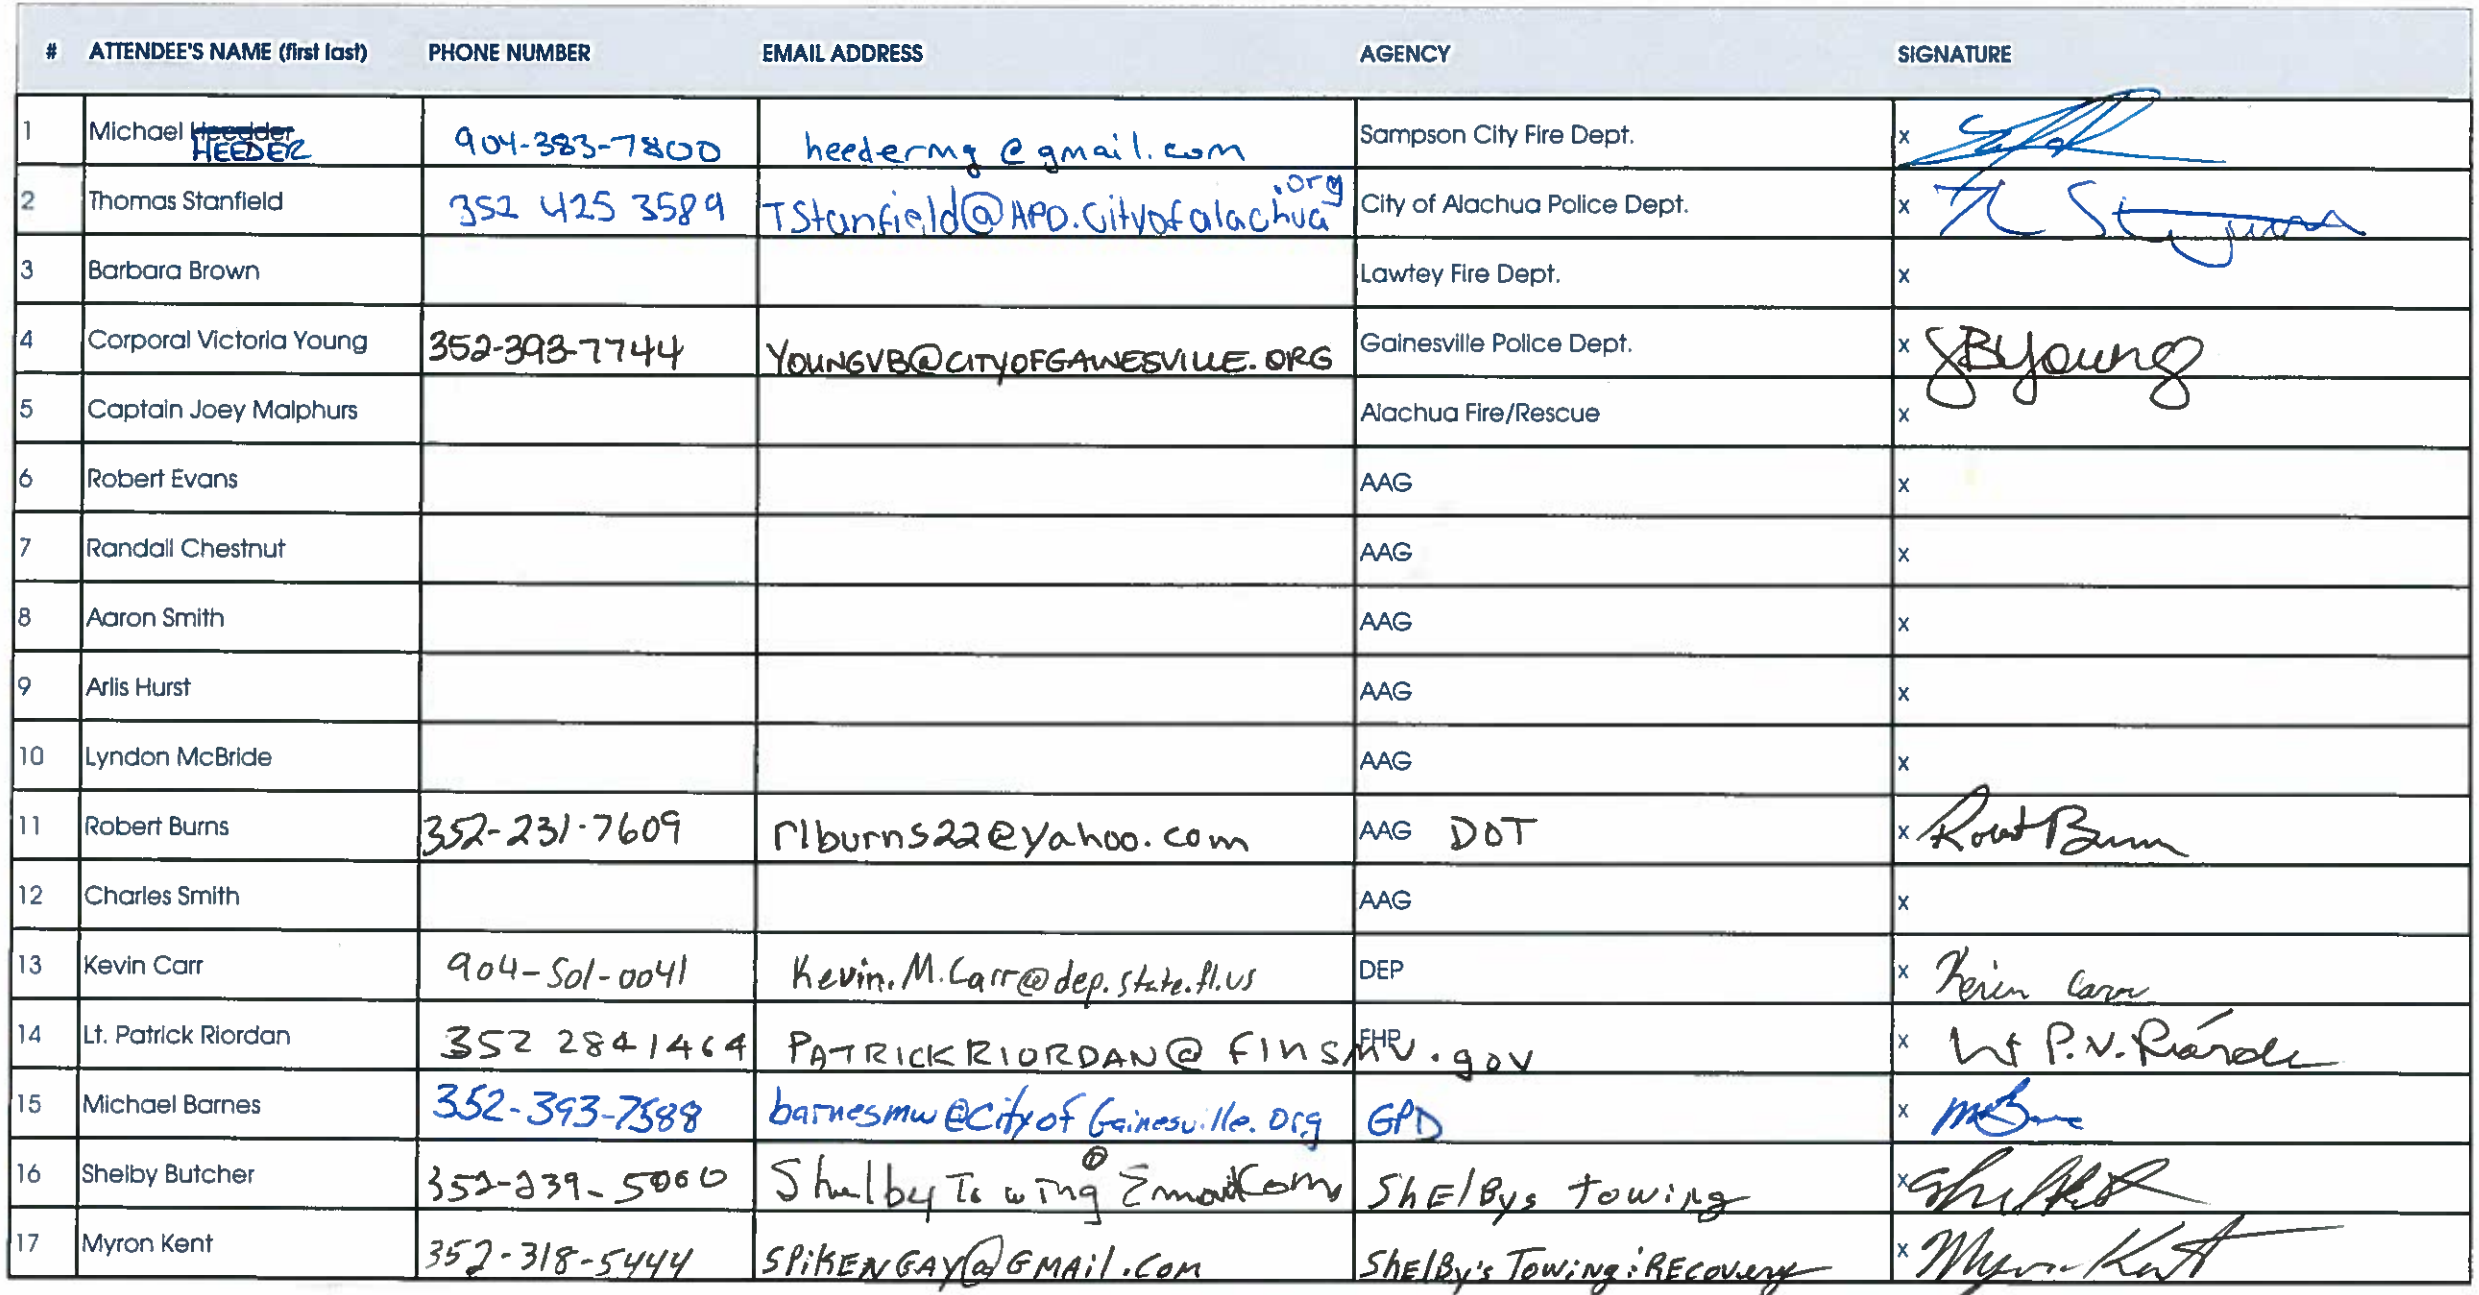 # ATTENDEE'S NAME (first last) PHONE NUMBER EMAIL ADDRESS AGENCY SIGNATURE
1 Michael Heedder HEEDER 904-383-7800 heedermg@gmail.com Sampson City Fire Dept. x
2 Thomas Stanfield 352 425 3589 TStanfield@APD.Cityofalachua.org City of Alachua Police Dept. x
3 Barbara Brown Lawtey Fire Dept. x
4 Corporal Victoria Young 352-393-7744 YOUNGVB@CITYOFGAINESVILLE.ORG Gainesville Police Dept. x VBYoung
5 Captain Joey Malphurs Alachua Fire/Rescue x
6 Robert Evans AAG x
7 Randall Chestnut AAG x
8 Aaron Smith AAG x
9 Arlis Hurst AAG x
10 Lyndon McBride AAG x
11 Robert Burns 352-231-7609 rlburns22@yahoo.com AAG DOT x Robert Burns
12 Charles Smith AAG x
13 Kevin Carr 904-501-0041 Kevin.M.Carr@dep.state.fl.us DEP x Kevin Carr
14 Lt. Patrick Riordan 352 284 1464 PATRICKRIORDAN@flhsmv.gov FHP x Lt P.N. Riordan
15 Michael Barnes 352-393-7588 barnesmw@CityofGainesville.Org GPD x
16 Shelby Butcher 352-239-5060 Shelby Towing@ Shelbys Towing x
17 Myron Kent 352-318-5444 SPiKENGAY@GMAil.COM ShelBy's Towing : RECovery x Myron Kent